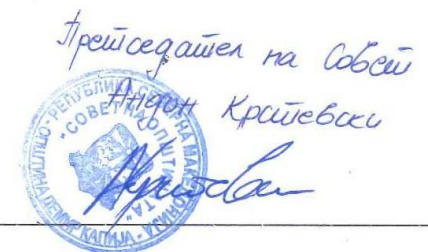 Претседател на Совет
Андон Крстевски
РЕПУБЛИКА СЕВЕРНА МАКЕДОНИЈА
"СОВЕТ НА ОПШТИНАТА"
ДЕМИР КАПИЈА